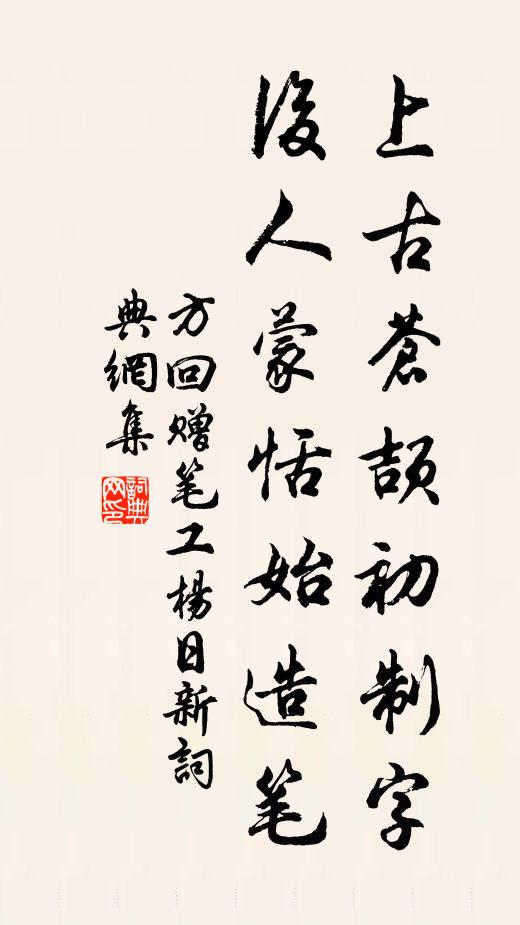 上古蒼頡初制字
後人蒙恬始造笔
方回赠笔工楊日新詞
典網集
詞典网印